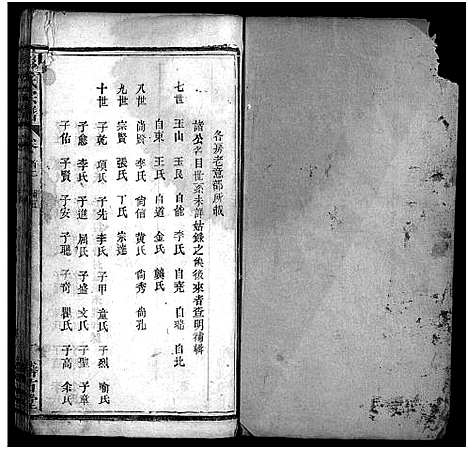 各房老草部所載
諸公名目世系未詳姑錄之俟後來者查明補輯
七世 王山 王良 自能 李氏 自堯 自瑞 自北
自東 王氏 自道 金氏 龔氏
八世 尚賢 李氏 尚信 黄氏 尚秀 尚孔
九世 宗賢 張氏 丁氏 宗達
十世 子乾 項氏 子先 李氏 子甲 童氏 子烈 喻氏
子慈 李氏 子進 屈氏 子盛 文氏 子聖 子章
子佑 子賢 子安 子聰 子尚 瞿氏 子高 余氏